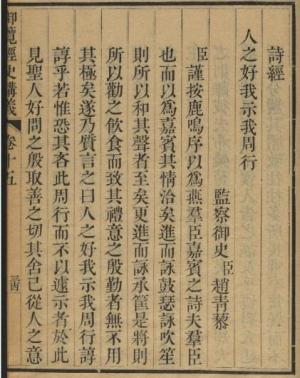 詩經
人之好我示我周行
監察御史臣趙青藜
臣謹按鹿鳴序以為燕羣臣嘉賓之詩夫羣臣
也而以為嘉賓其情洽矣進而詠鼓瑟詠吹笙
則所以和其聲者至矣更進而詠承筐是將則
所以勸之飲食而致其禮意之殷勤者無不用
其極矣遂乃質言之曰人之好我示我周行諄
諄乎若惟恐其吝此周行而不以遠示者於此
見聖人好問之殷取善之切其舍己從人之意
御覽經史講義
卷十五